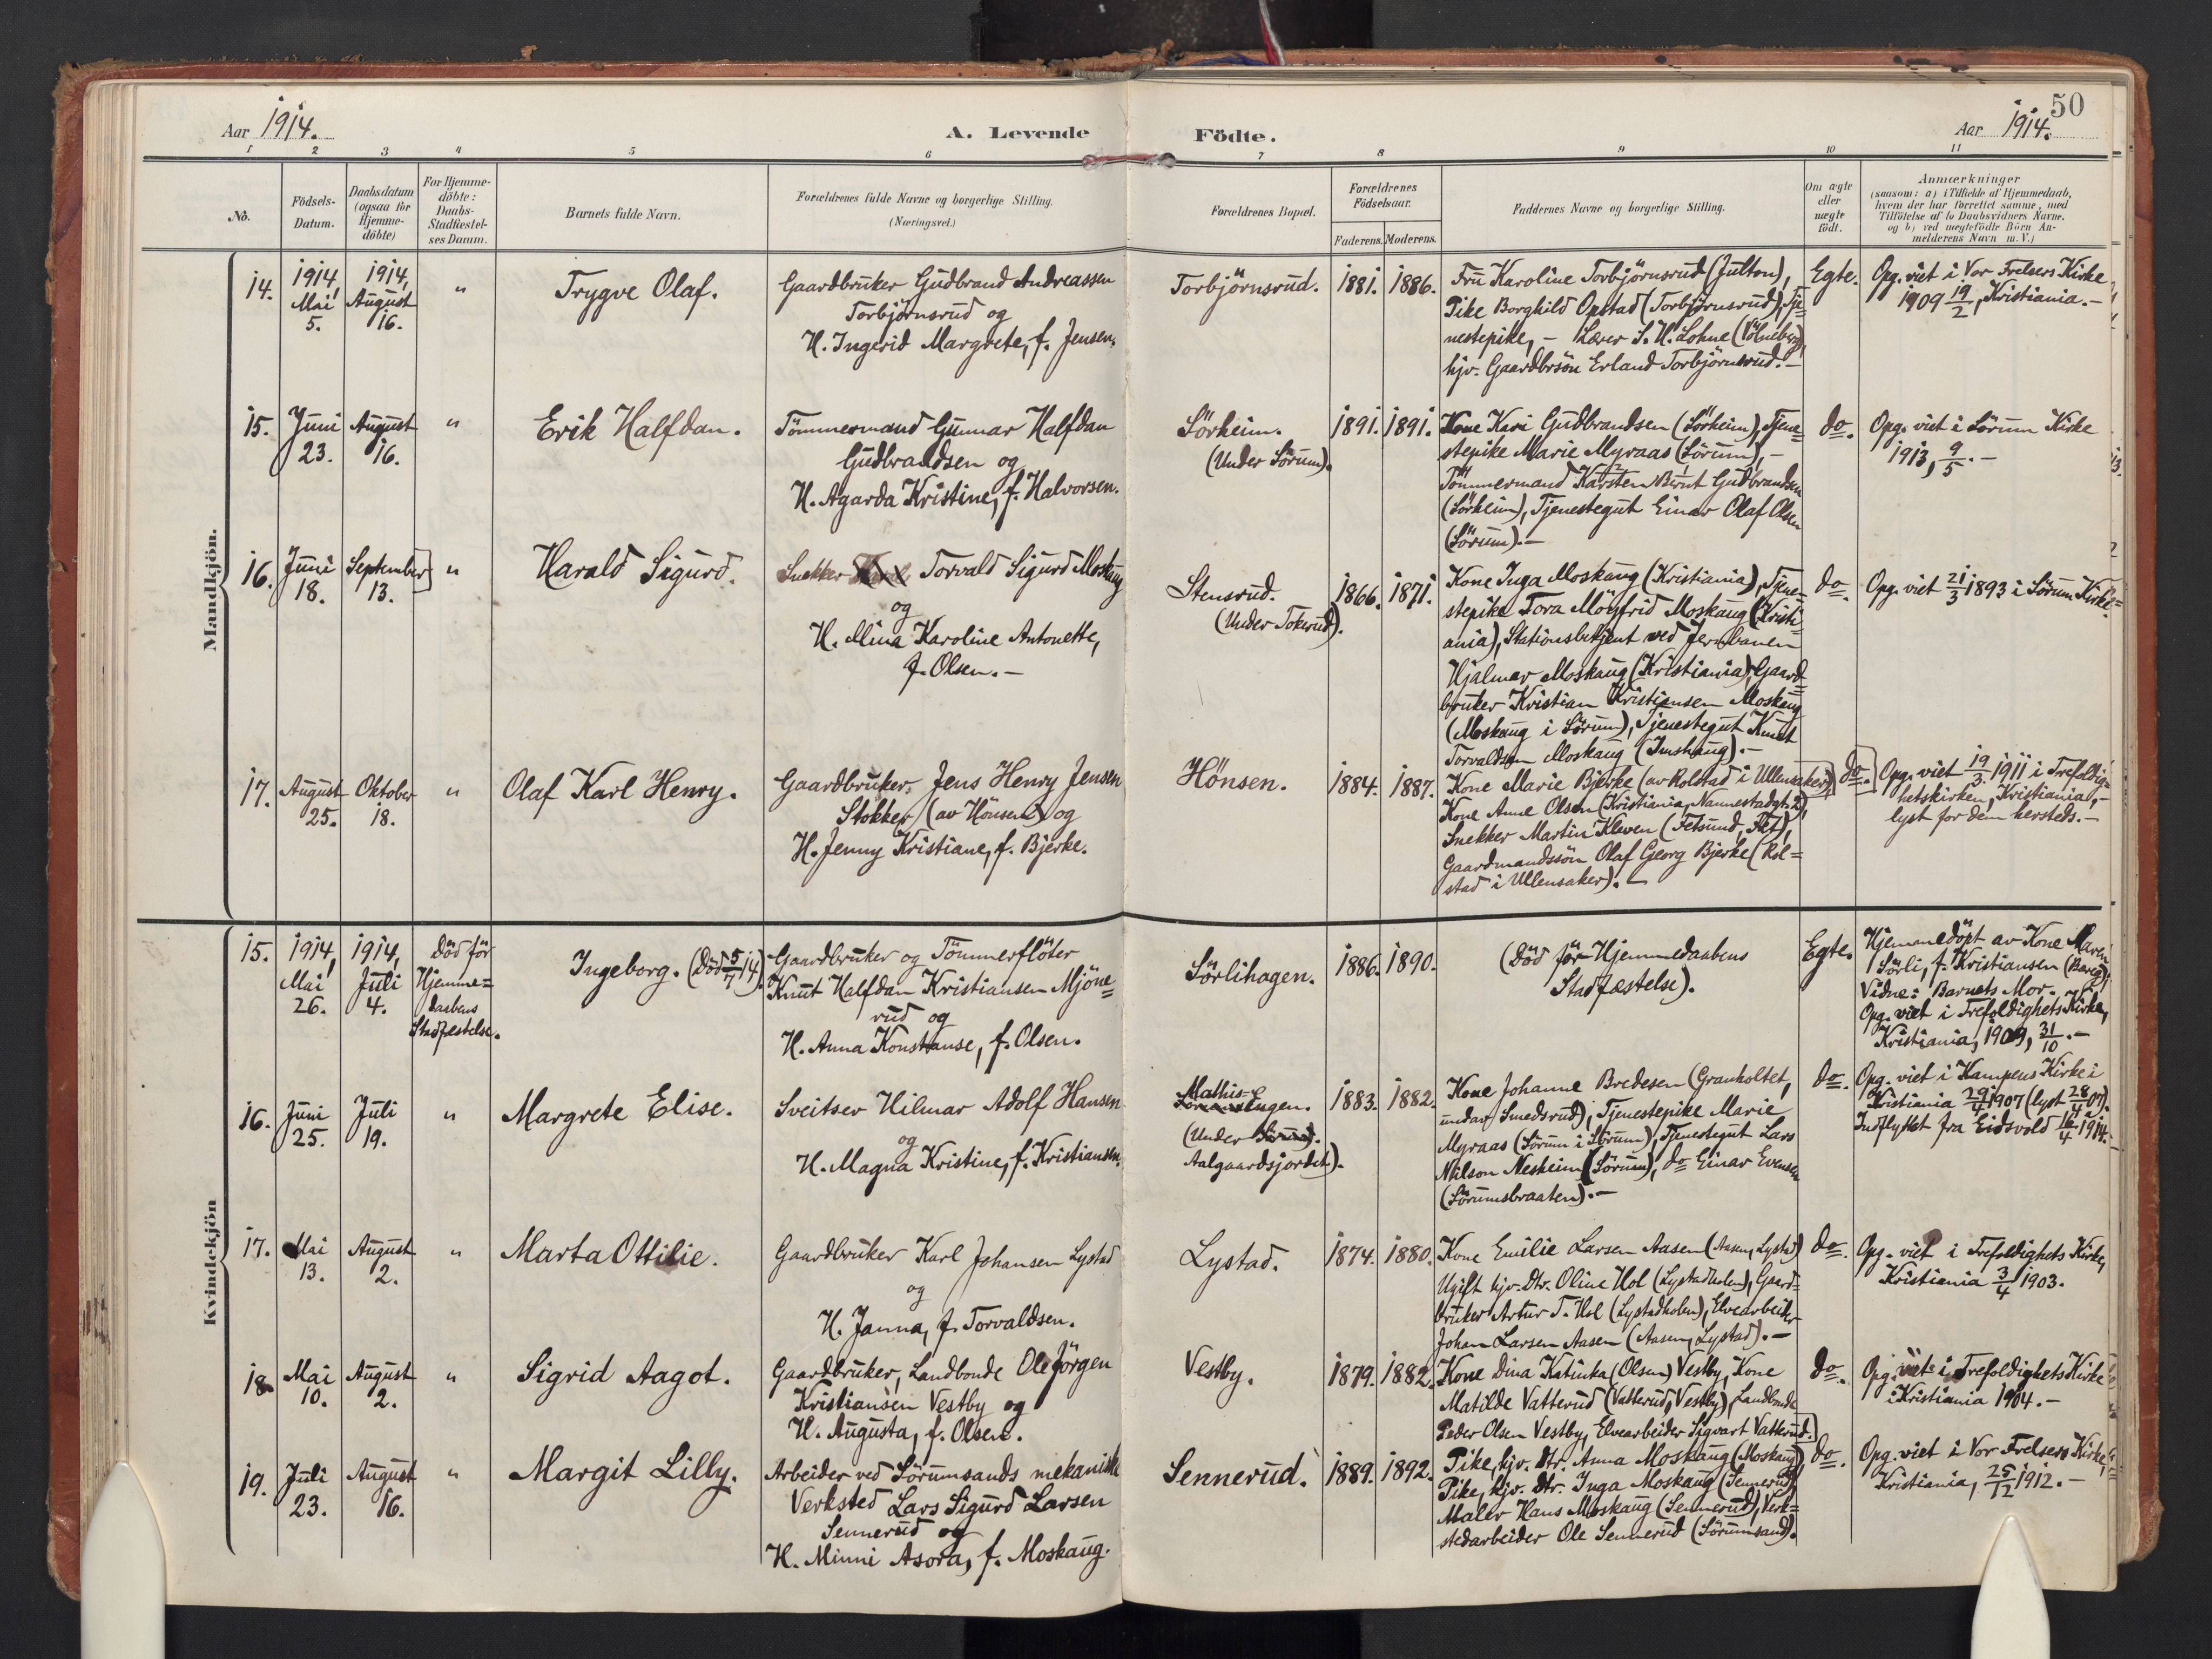 50
Aar 1914.
A. Levende
Födte.
Aar 1914.
1 2 3 4 5 6 7 8 9 10 11
No.
Födsels-
Datum.
Daabsdatum
(ogsaa for
Hjemme-
döbte)
For Hjemme-
döbte:
Daabs-
Stadfæstel-
ses Datum.
Barnets fulde Navn.
Forældrenes fulde Navne og borgerlige Stilling.
(Næringsvei.)
Forældrenes Bopæl.
Forældrenes
Födselsaar.
Faderens. Moderens.
Faddernes Navne og borgerlige Stilling.
Om ægte
eller
uægte
födt.
Anmærkninger
(saasom: a) i Tilfælde af Hjemmedaab,
hvem der har forrettet samme, med
Tilföielse af to Daabsvidners Navne.
og b) ved uægtefödte Börn An-
melderens Navn m.V.)
Mandkjön.
14.
1914,
Mai
5.
1914,
August
16.
"
Trygve Olaf.
Gaardbruker Gudbrand Andreassen
Torbjörnsrud og
H. Ingerid Margrete, f. Jensen.
Torbjörnsrud.
1881. 1886.
Fru Karoline Torbjörnsrud (Julton),
Pike Borghild Opstad (Torbjörnsrud), Tje=
nestepike, - Lærer S. H. Lohne
hjv. Gaardbrsön Erland Torbjörnsrud.-
Egte.
Opg. viet i Vor Frelsers Kirke
1909 19/2, Kristiania.-
15.
Juni
23.
August
16.
"
Erik Halfdan.
Tömmermand Gunnar Halfdan
Gudbrandsen og
H. Agarda Kristine, f. Halvorsen.
Sörheim.
(Under Sörum).
1891. 1891.
Kone Kari Gudbrandsen (Sörheim), Tjene=
stepike Marie Myraas (Sörum), -
Tömmermand Karsten Bernt Gudbrandsen
(Sörheim), Tjenestegut Einar Olaf Olsen
(Sörum).-
do.
Opg. viet i Sörum Kirke
1913, 9/5.-
16.
Juni
18.
September
13.
"
Harald Sigurd.
Snekker Torvald Sigurd Moskaug
og
H. Mina Karoline Antonette,
f. Olsen.-
Stensrud.
(Under Tokerud).
1866. 1871.
Kone Inga Moskaug (Kristiania), Tjene=
stepike Tora Möyfrid Moskaug (Kristi=
ania), Stationsbetjent ved Jernbanen
Hjalmar Moskaug (Kristiania), Gaard=
bruker Kristian Kristiansen Moskaug
(Moskaug i Sörum), Tjenestegut Knut
Torvaldsen Moskaug (Imshaug).-
do.
Opg. viet 21/3 1893 i Sörum Kirke.=
17.
August
25.
Oktober
18.
"
Olaf Karl Henry.
Gaardbruker, Jens Henry Jensen
Stokker (av Hönsen) og
H. Jenny Kristiane, f. Bjerke.
Hönsen.
1884. 1887.
Kone Marie Bjerke (av Rolstad i Ullensaker),
Kone Anne Olsen (Kristiania, Nannestadgt. 2),
Snekker Martin Kleven (Fetsund, Fet),
Gaardmandssön Olaf Georg Bjerke (Rol=
stad i Ullensaker).-
do.
Opg. viet 19/3 1911 i Trefoldig=
hetskirken, Kristiania,-
lyst for dem hersteds.-
Kvindekjön
15.
1914,
Mai
26.
1914,
Juli
4.
Död för
Hjemme=
daabens
Stadfæstelse.
Ingeborg. (Död 5/7 14).
Gaardbruker og Tömmerflöter
Knut Halfdan Kristiansen Mjöne=
rud og
H. Anna Konstanse, f. Olsen.
Sörlihagen.
1886. 1890.
(Död för Hjemmedaabens
Stadfæstelse).
Egte.
Hjemmedöpt av Kone Maren
Sörli, f. Kristiansen
Vidne: Barnets Mor.-
Opg. viet i Trefoldighets Kirke,
Kristiania, 1909, 31/10.-
16.
Juni
25.
Juli
19.
"
Margrete Elise.
Sveitser Hilmar Adolf Hansen
og
H. Magna Kristine, f. Kristiansen.
Mathis-E
engen.
(Under Sörum).
Aalgaardsjordet).
1883. 1882.
Kone Johanne Bredesen (Granholtet,
under Smedsrud), Tjenestepike Marie
Myraas (Sörum i Sörum), Tjenestegut Lars
Nilsen Nesheim (Sörum), do Einar Evensen
(Sörumsbraaten).-
do.
Opg. viet i Kampens Kirke i
Kristiania 29/4 1907 (lyst 28/4 07).
Indflyttet fra Eidsvold 16/4 1914.
17.
Mai
13.
August
2.
"
Marta Ottilie.
Gaardbruker Karl Johansen Lystad
og
H. Janna, f. Torvaldsen.
Lystad.
1874. 1880.
Kone Emilie Larsen Aasen (Aasen, Lystad)
Ugift hjv. Dtr. Oline Hol (Lystadholen), Gaard=
bruker Artur T. Hol (Lystadholen), Elvearbeider
Johan Larsen Aasen (Aasen, Lystad).-
do.
Opg. viet i Trefoldighets Kirke,
Kristiania 3/4 1903.
18
Mai
10.
August
2.
"
Sigrid Aagot.
Gaardbruker, Landbonde Ole Jörgen
Kristiansen Vestby og
H. Augusta, f. Olsen.
Vestby.
1879. 1882.
Kone Dina Katinka (Olsen) Vestby, Kone
Matilde Vatterud (Vatterud, Vestby), Landbonde
Peder Olsen Vestby, Elvearbeider Sigvart Vatterud.
do.
Opg. viet i Trefoldighets Kirke
i Kristiania 1904.-
19.
Juli
23.
August
16.
"
Margit Lilly.
Arbeider ved Sörumsands mekaniske
Verksted Lars Sigurd Larsen
Sennerud og
H. Minni Asora, f. Moskaug.
Sennerud.
1889. 1892.
Pike, hjv. Dtr. Anna Moskaug (Moskaug),
Pike, hjv. Dtr. Inga Moskaug (Sennerud),
Maler Hans Moskaug (Sennerud), Verk=
stedarbeider Ole Sennerud (Sörumsand).
do.
Opg. viet i Vor Frelsers Kirke,
Kristiania, 25/12 1912.-